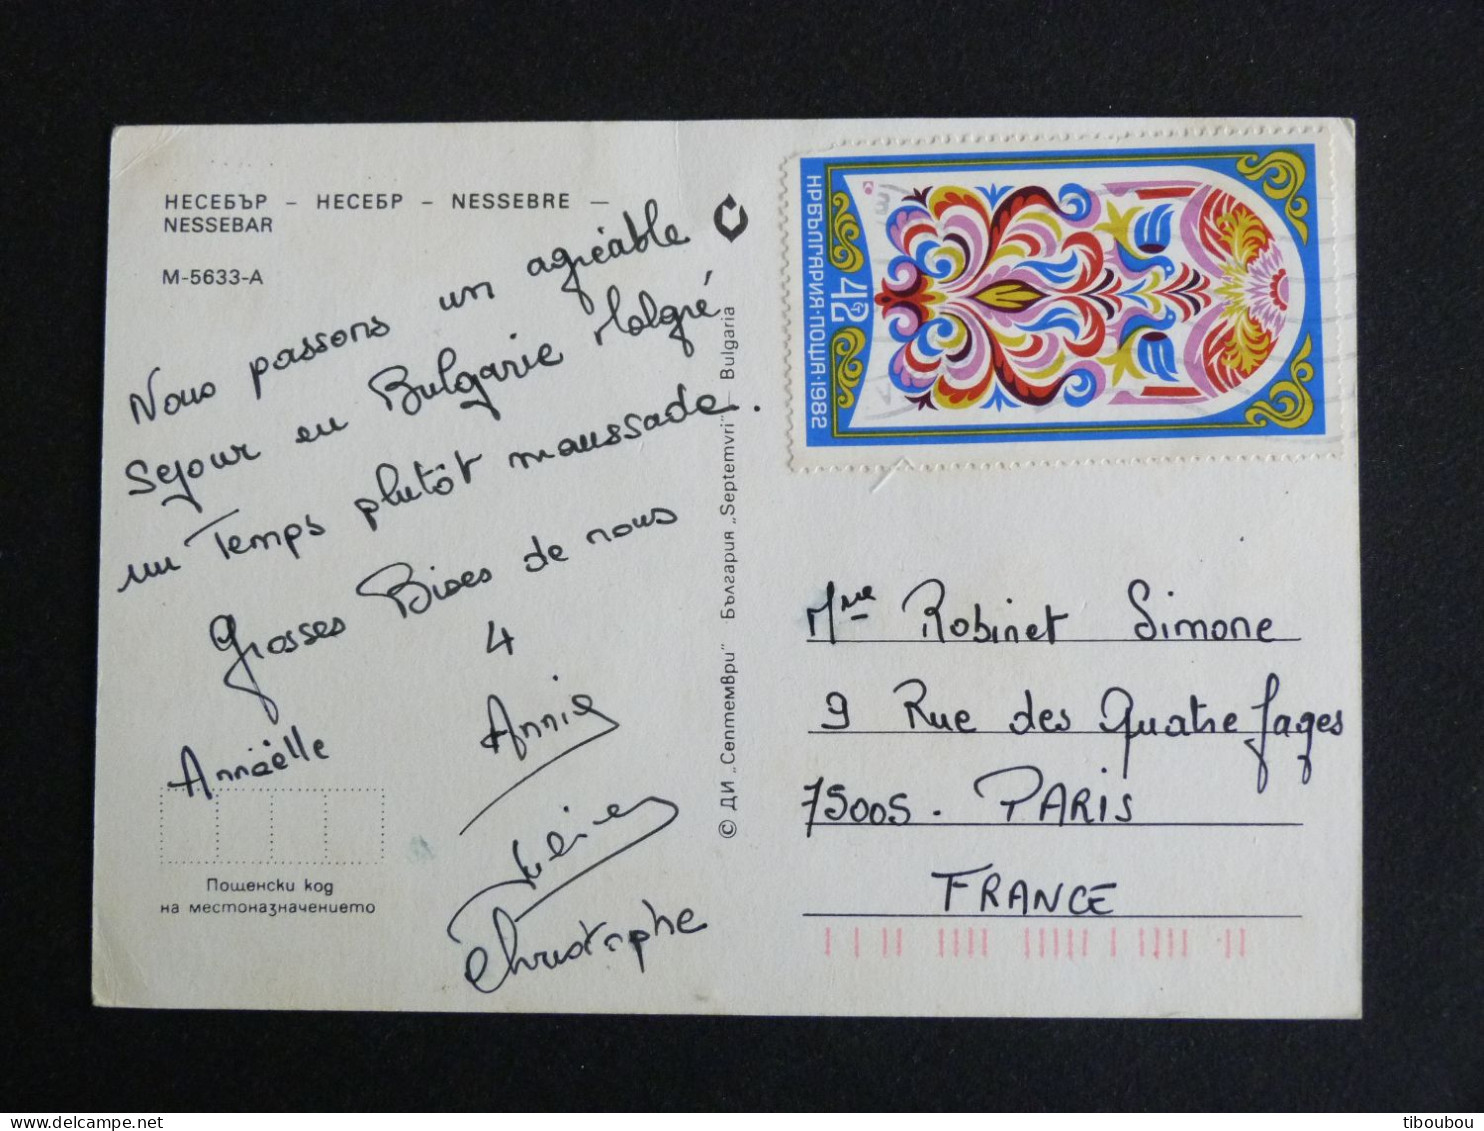 НЕСЕБЪР – НЕСЕБР – NESSEBRE –
NESSEBAR
М-5633-А
Nous passons un agréable
Sejour en Bulgarie Malgré
un Temps plutôt maussade.
Grosses Bises de nous
4
Annaëlle
Annie
Christophe
Пощенски код
на местоназначението
© ДИ „Септември" България „Septemvri" – Bulgaria
НР БЪЛГАРИЯ·ПОЩА·1982
42
Mme Robinet Simone
9 Rue des Quatre fages
75005. PARIS
FRANCE
tiboubou